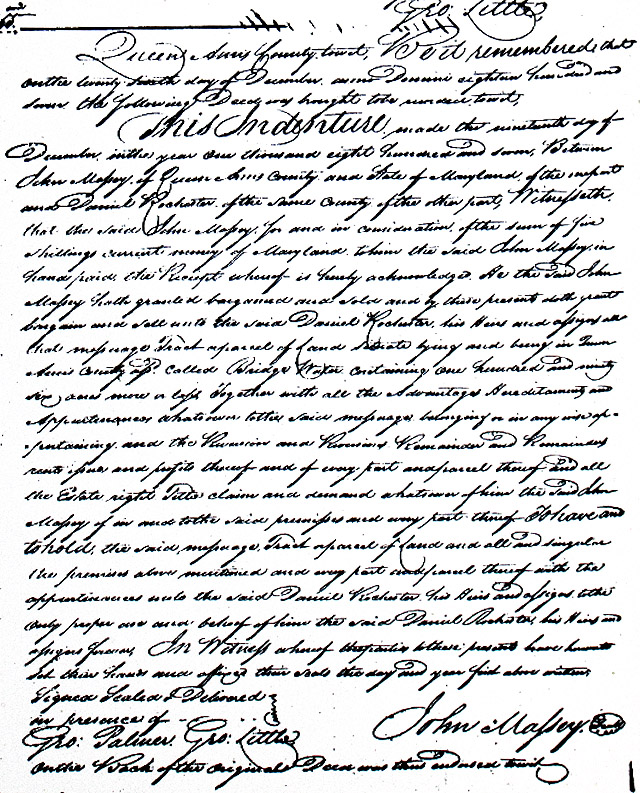 Geo: Little
Queen Anns County, towit, Be it remembered that
on the twenty sixth day of December, anno Domini eighteen hundred and
seven the following Deed was brought to be recorded towit,
This Indenture, made the nineteenth day of
December, in the year one thousand eight hundred and seven, Between
John Massey, of Queen Anns County and State of Maryland, of the one part
and Daniel Rochester, of the same County of the other part, Witnesseth,
that the said John Massey, for and in consideration, of the sum of five
shillings current money of Maryland, to him the said John Massey, in
hand paid, the Receipt whereof is hereby acknowledged, He the said John
Massey hath granted bargained and sold and by these presents doth grant
bargain and sell unto the said Daniel Rochester, his Heirs and assigns all
that messuage Tract or parcel of Land situate lying and being in Queen
Anns County called Bridge Water containing One hundred and ninety
six acres more or less, Together with all the Advantages Hereditaments and
Appurtenances whatsoever to the said messuage belonging or in any wise ap-
-pertaining, and the Reversion and Reversions Remainder and Remainders
rents issues and profits thereof and of every part and parcel thereof and all
the Estate right Title claim and demand whatsoever of him the said John
Massey of in and to the said premises and every part thereof To have and
to hold, the said, messuage, Tract or parcel of Land and all and singular
the premises above mentioned and every part and parcel thereof with the
appurtenances unto the said Daniel Rochester, his Heirs and assigns to the
only proper use and behoof of him the said Daniel Rochester, his Heirs and
assigns forever, In Witness whereof the parties to these presents have hereunto
set their hands and affixed their seals the day and year first above written,
Signed Sealed & Delivered
in presence of - - John Massey. Seal
Geo: Palmer. Geo: Little
On the Back of the original Deed was thus endorsed towit,